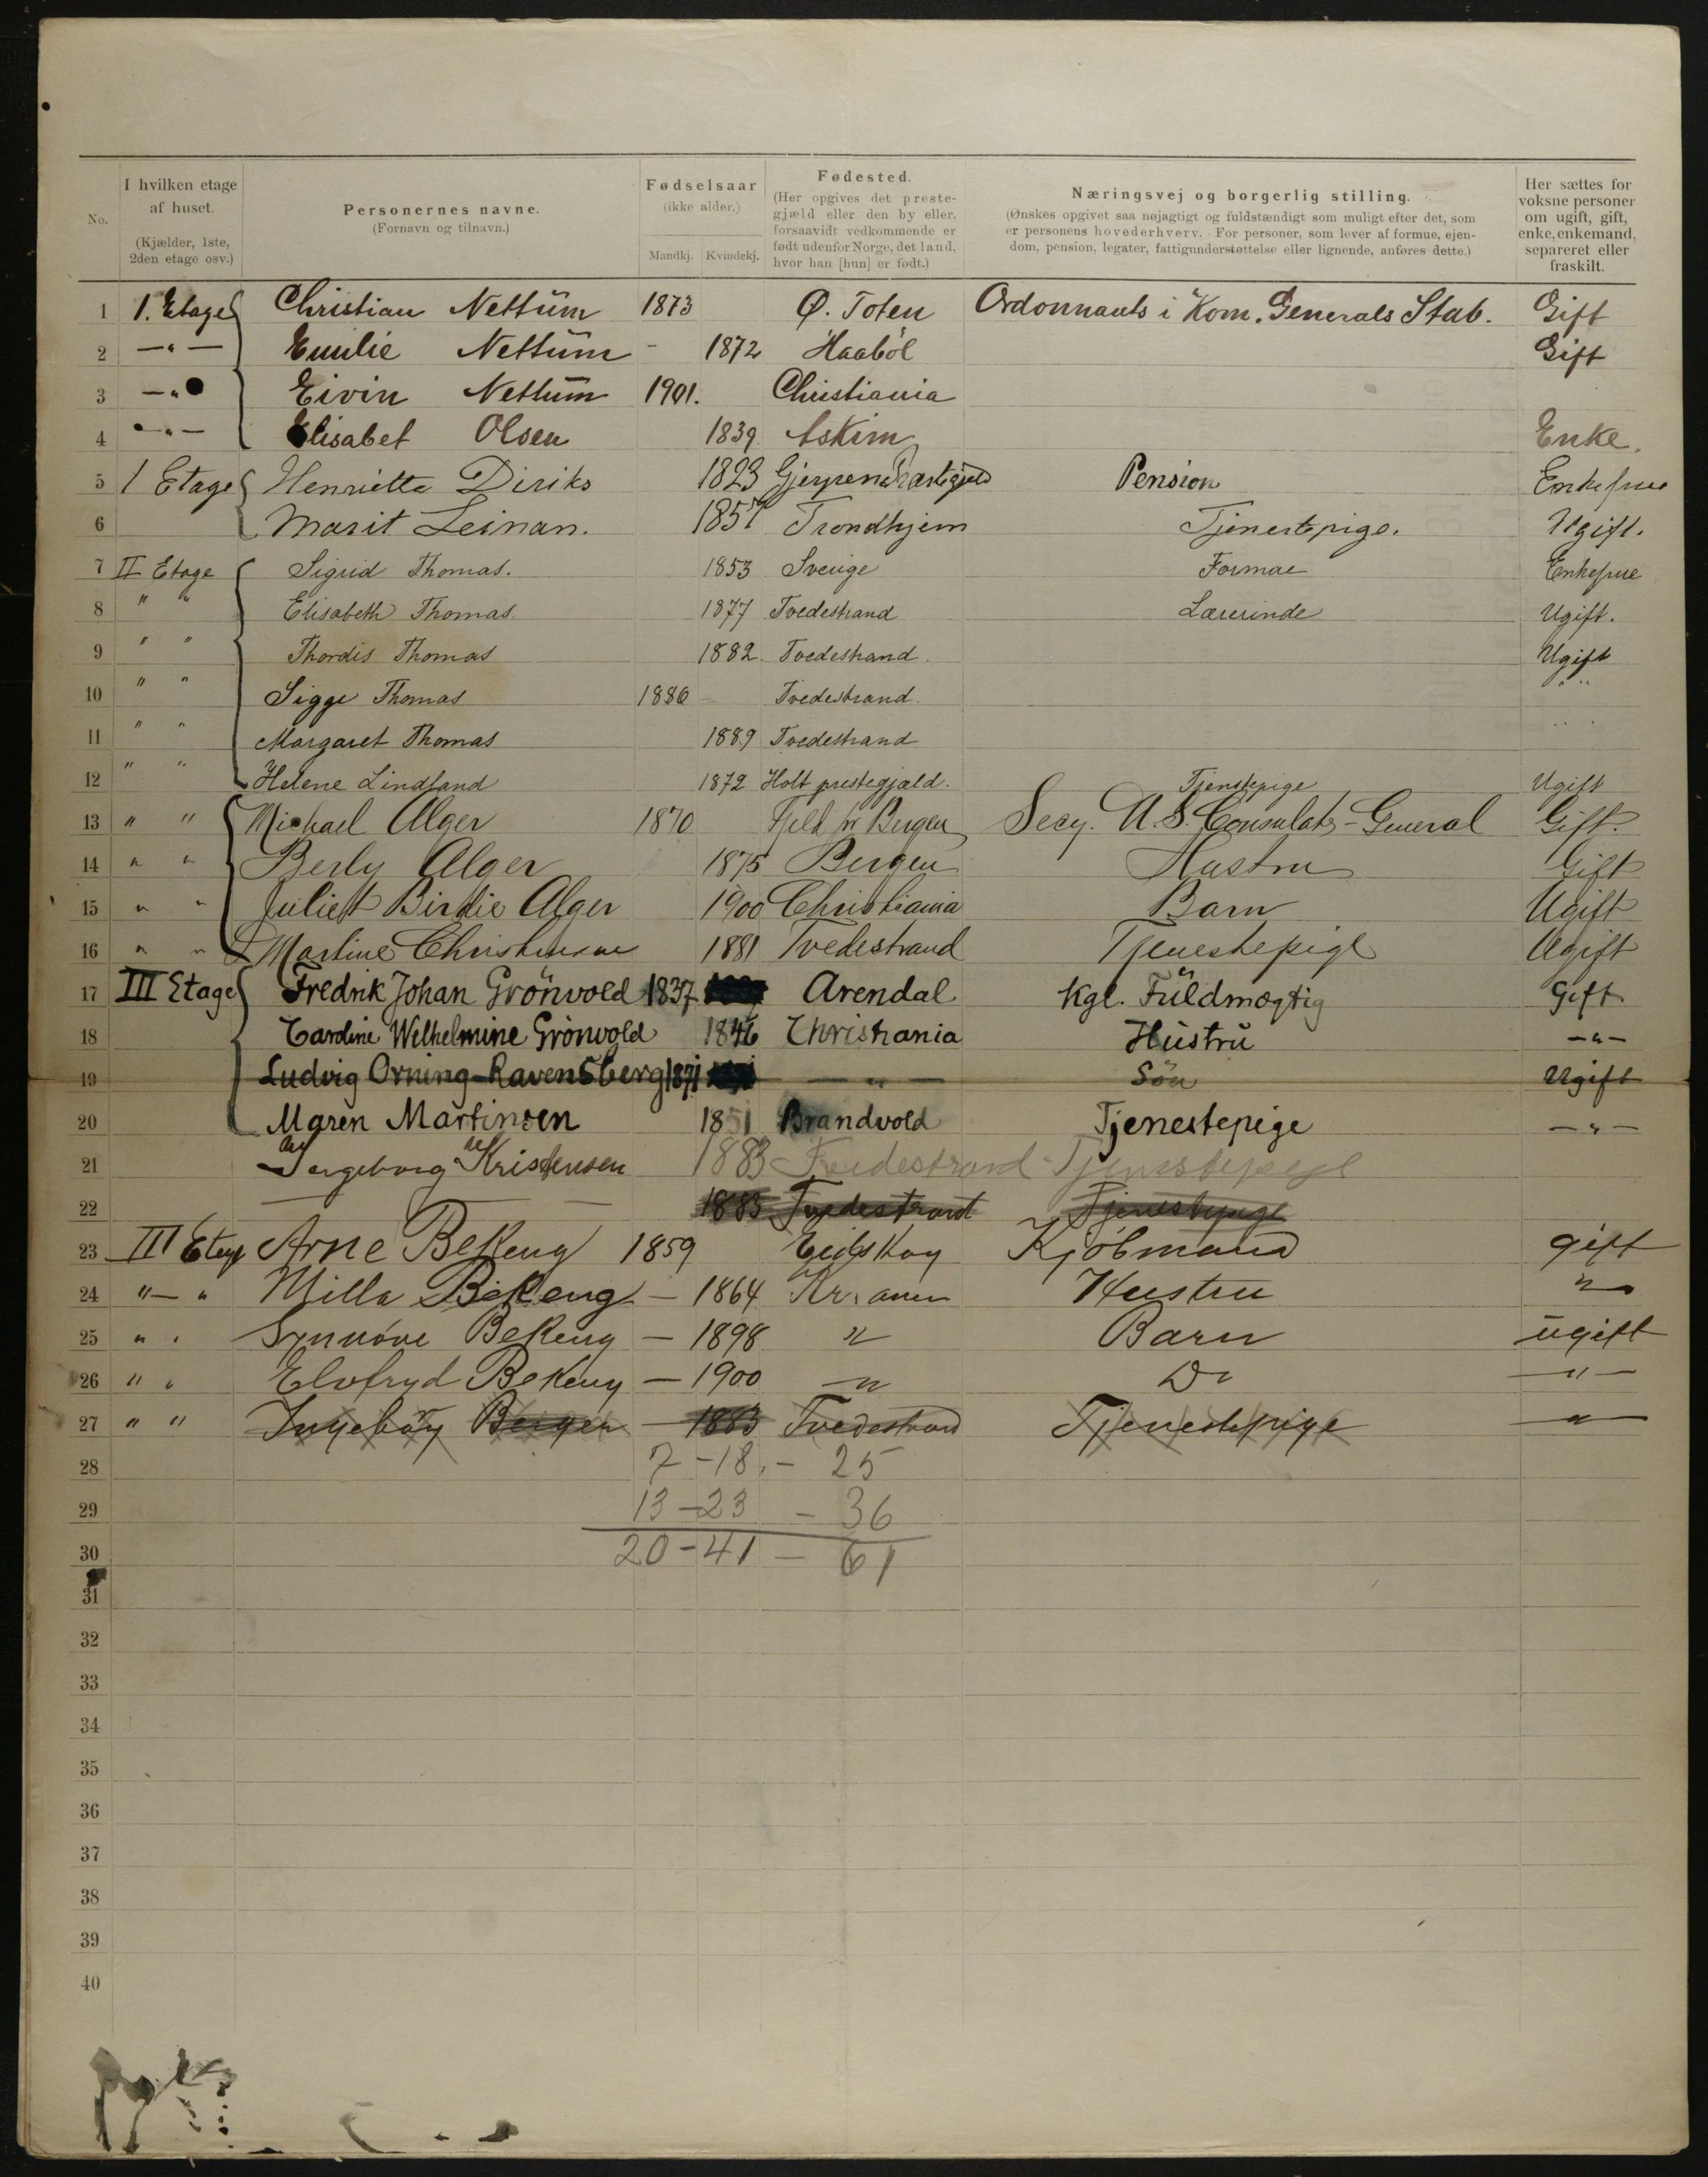 No. I hvilken etage af huset. (Kjælder, 1ste, 2den etage osv.) Personernes navne. (Fornavn og tilnavn.) Fødselsaar (ikke alder.) Mandkj. Kvindekj. Fødested. (Her opgives det prestegjæld eller den by eller, forsaavidt vedkommende er født udenfor Norge, det land, hvor han [hun] er født.) Næringsvej og borgerlig stilling. (Ønskes opgivet saa nøjagtigt og fuldstændigt som muligt efter det, som er personens hovederhverv. For personer, som lever af formue, ejendom, pension, legater, fattigunderstøttelse eller lignende, anføres dette.) Her sættes for voksne personer om ugift, gift, enke, enkemand, separeret eller fraskilt.
1 1. Etage Christian Nettum 1873 Ø. Toten Ordonnants i Kom. Generals Stab. Gift
2 —"— Emilie Nettum - 1872 Haabøl Gift
3 —" Eivin Nettum 1901. Christiania
4 —"— Elisabet Olsen 1839 Askim Enke.
5 1 Etage Henrietta Diriks 1823 Gjerpens Præstegjeld Pension Enkefrue
6 Marit Leinan. 1851 Trondhjem Tjenestepige. Ugift.
7 II Etage Sigrid Thomas. 1853 Sverige Formue Enkefrue
8 " " Elisabeth Thomas. 1877 Tvedestrand Lærerinde Ugift.
9 " " Thordis Thomas 1882. Tvedestrand. Ugift
10 " " Sigge Thomas 1886 Tvedestrand. " "
11 " " Margaret Thomas 1889 Tvedestrand " "
12 " " Helene Lindland 1872 Holt prestegjæld. Tjenstepige Ugift
13 " " Michael Alger 1870 Fjeld pr Bergen Secy. U.S. Consulate-General Gift.
14 " " Berly Alger 1875 Bergen Hustru Gift
15 " " Juliet Birdie Alger 1900 Christiania Barn Ugift
16 " " Martine 1881 Tvedestrand Tjenestepige Ugift
17 III Etage Fredrik Johan Grönvold 1837 Arendal Kgl. Fuldmægtig Gift
18 Caroline Welhelmine Grönvold 1846 Christiania Hustru —"—
19 Ludvig Orning-Ravensberg 1871 —"— Sön Ugift
20 Maren Martinsen 1851 Brandvold Tjenestepige —"—
21 Ingeborg Kristensen 1883 Tvedestrand Tjenestepige
22 1883 Tvedestrand Tjenestepige
23 III Etage Arne Bekeng 1859 Eidskog Kjöbmand gift
24 "— " Milla Bekeng — 1864 Kr.ania Hustru "
25 " " Synnöve Bekeng — 1898 " Barn ugift
26 " " Elofryd Bekeng — 1900 —" Do —"—
27 " " Ingeborg Bergen — 1883 Tvedestrand Tjenestepige —"—
28 7 - 18. - 25
29 13 - 23 - 36
30 20 - 41 - 61
31
32
33
34
35
36
37
38
39
40